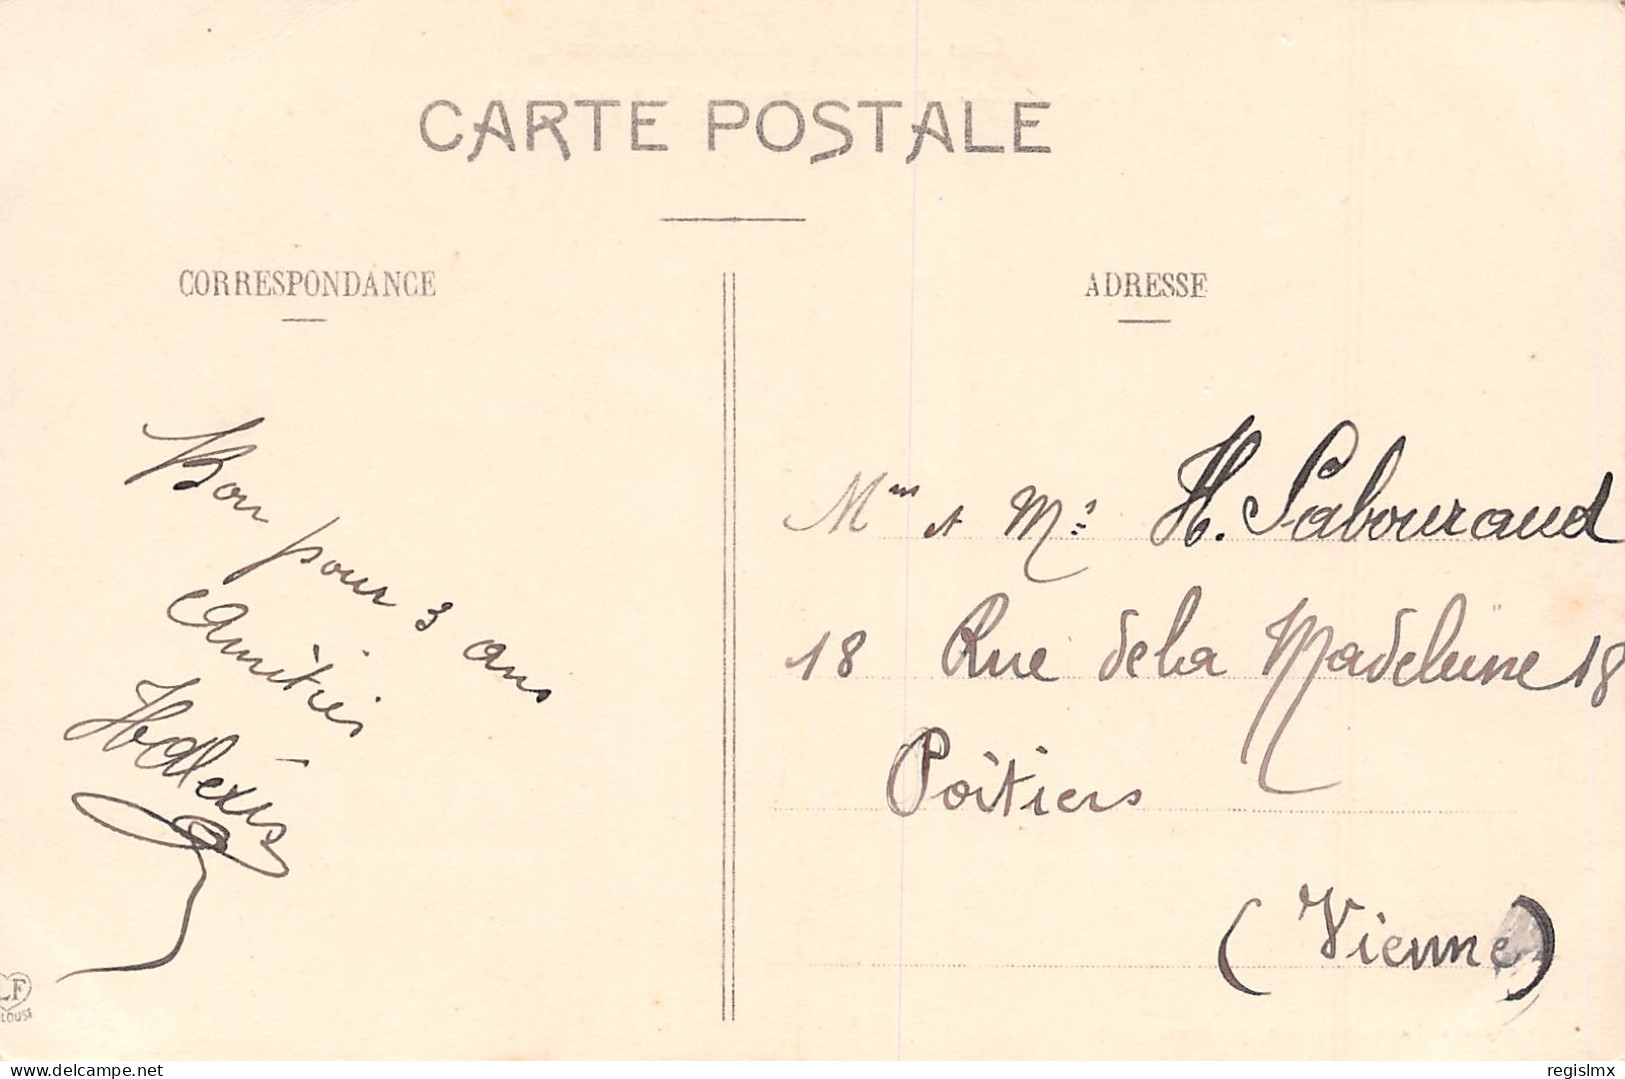 CARTE POSTALE
CORRESPONDANCE
ADRESSE
Bon pour 3 ans
Amitiés
HAlexis
Mme et Mr H. Sabouraud
18 Rue de la Madeleine 18
Poitiers
(Vienne)
LF
www.delcampe.net
regislmx